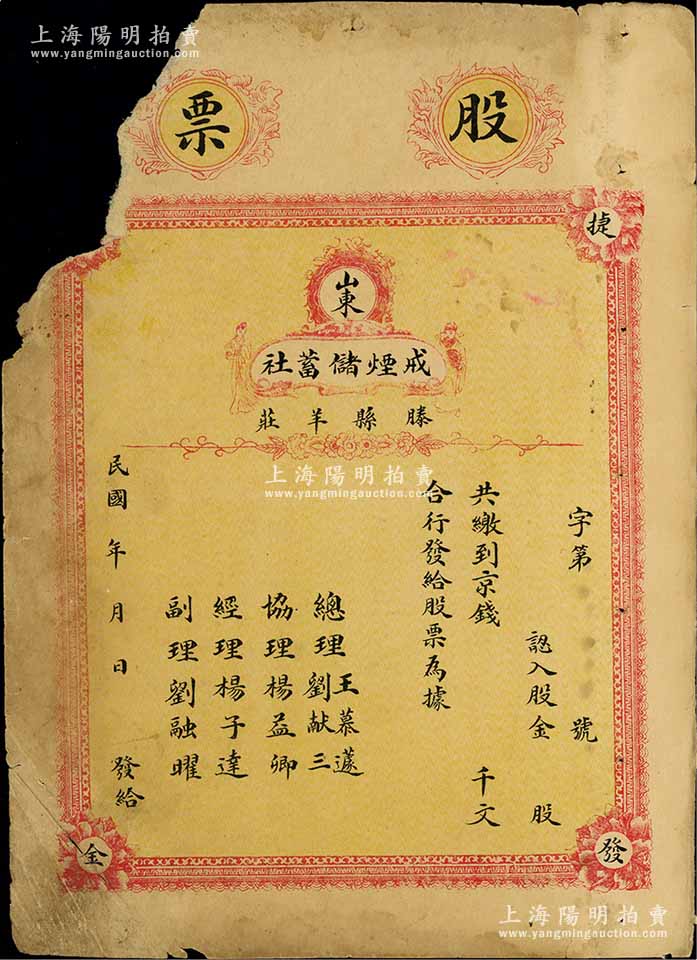 上海陽明拍賣
www.yangmingauction.com
股票
捷
發
全
山東
戒煙儲蓄社
滕縣羊莊
字第 號
認入股金 股
共繳到京錢 千文
合行發給股票為據
總理 王慕蘧
劉献三
協理楊益卿
經理楊子達
副理劉融曜
民國 年 月 日 發給
上海陽明拍賣
www.yangmingauction.com
上海陽明拍賣
www.yangmingauction.com